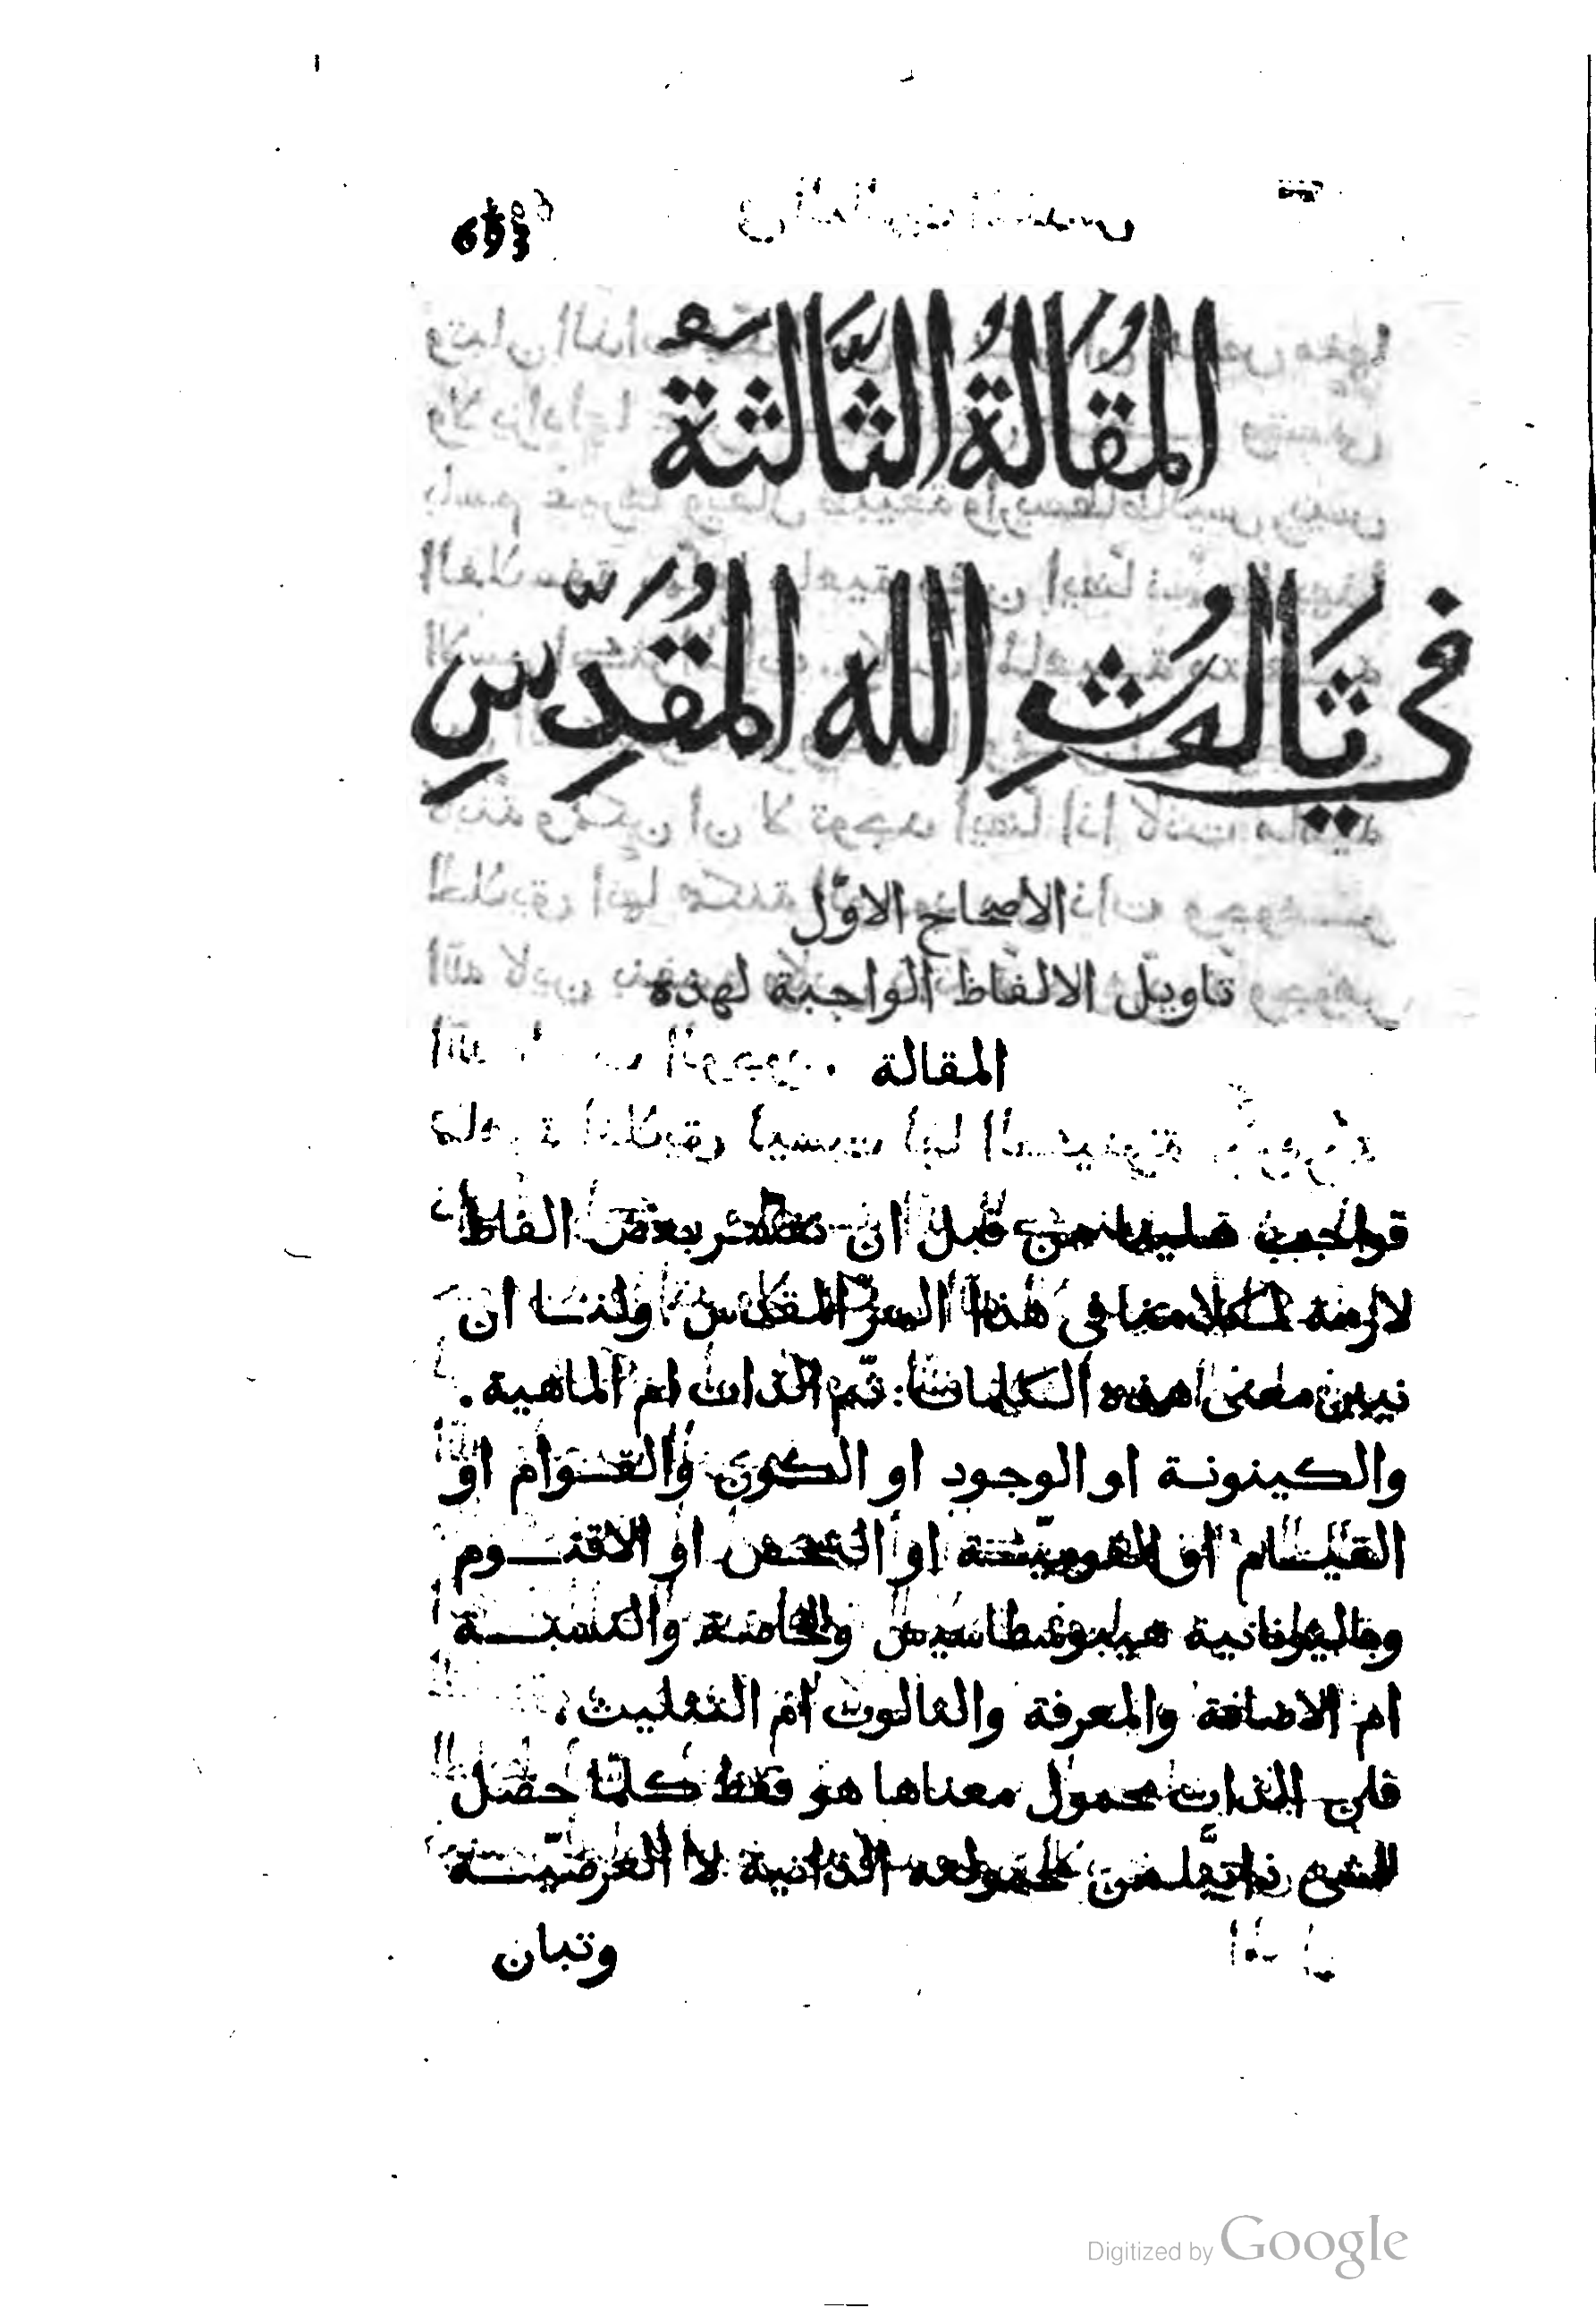 المَقَالَةُ الثَّالِثَةُ
فِي ثَالُوثِ الله المُقَدَّسِ
الاصحاح الاوّل
تاويل الالفاظ الواجبة لهذه
المقالة .
قبل ان بعض الفاظ
لازمة لكلامنا في هذا السرّ المقدس ولنا ان
نبين معنى هذه الكلمات: ثم الذات ام الماهية .
والكينونة او الوجود او الكون والقوام او
القيام او القوميّة او الشخص او الاقنوم
وباليونانية هيبوسطاسيس والخاصة والنسبة
ام الاضافة والمعرفة والثالوث ام التثليث .
الذات محمول معناها هو فقط كلّما حصل
الشي الذاتية لا العرضيّة
وتبان
Digitized by Google